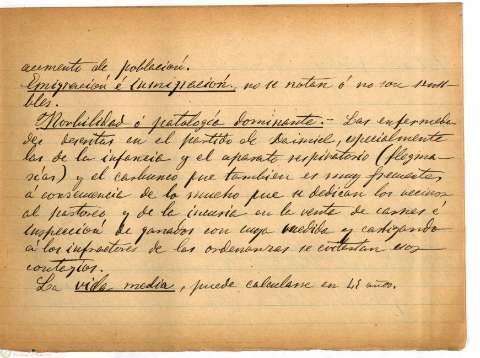 aumento de población.
Emigración é inmigración, no se notan ó no son sensi-
bles.
Morbilidad ó patología dominante.- Las enfermeda-
des descritas en el partido de Daimiel, especialmente
las de la infancia y el aparato respiratorio (flegma-
sias) y el carbunco que tambien es muy frecuente,
á consecuencia de lo mucho que se dedican los vecinos
al pastoreo y de la incuria en la venta de carnes é
inspección de ganados con cuya medida y castigando
á los infractores de las ordenanzas se evitarían
contagios.
La vida media, puede calcularse en años.